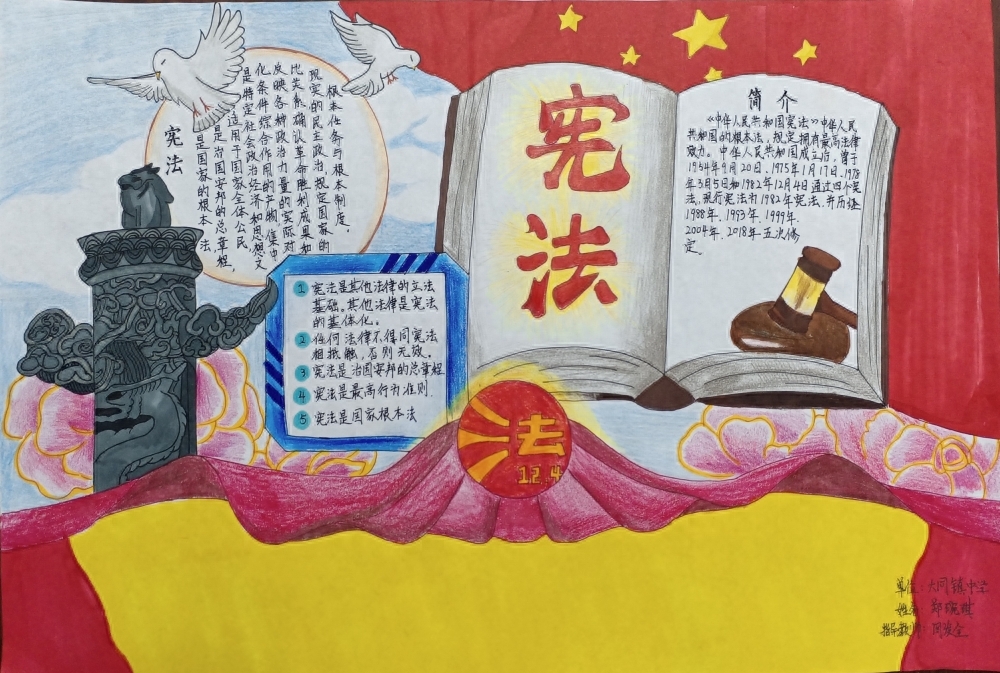 宪法
是国家的根本法,
是治国安邦的总章程,
适用于国家全体公民,
是特定社会政治经济和思想文
化条件综合作用的产物,集中
反映各种政治力量的实际对
比关系,确认革命胜利成果和
现实的民主政治,规定国家的
根本任务与根本制度。
1 宪法是其他法律的立法
基础。其他法律是宪法
的基体化。
2 任何法律不得同宪法
相抵触,否则无效。
3 宪法是治国安邦的总章程
4 宪法是最高行为准则
5 宪法是国家根本法
宪法
简介
《中华人民共和国宪法》中华人民
共和国的根本法,规定拥有最高法律
效力。中华人民共和国成立后,曾于
1954年9月20日、1975年1月17日、1978
年3月5日和1982年12月4日通过四个宪
法,现行宪法为1982年宪法,并历经
1988年、1993年、1999年、
2004年、2018年五次修
定。
法
12.4
单位:大同镇中学
姓名:郑琬琪
指导教师:周